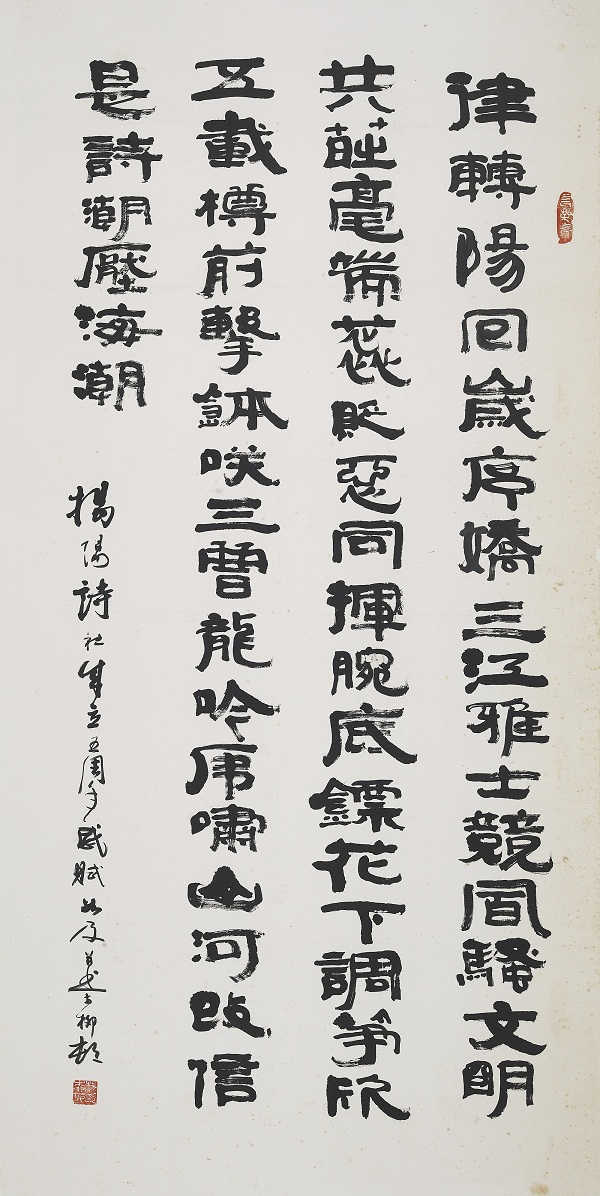 律轉陽回歲序嬌三江雅士競風騷文明
共毫端蕊貶惡同揮腕底鏢花下調箏欣
五載樽前擊鉢咲三曹龍吟虎嘯山河改信
是詩潮壓海潮
揭陽詩社成立五周年感賦